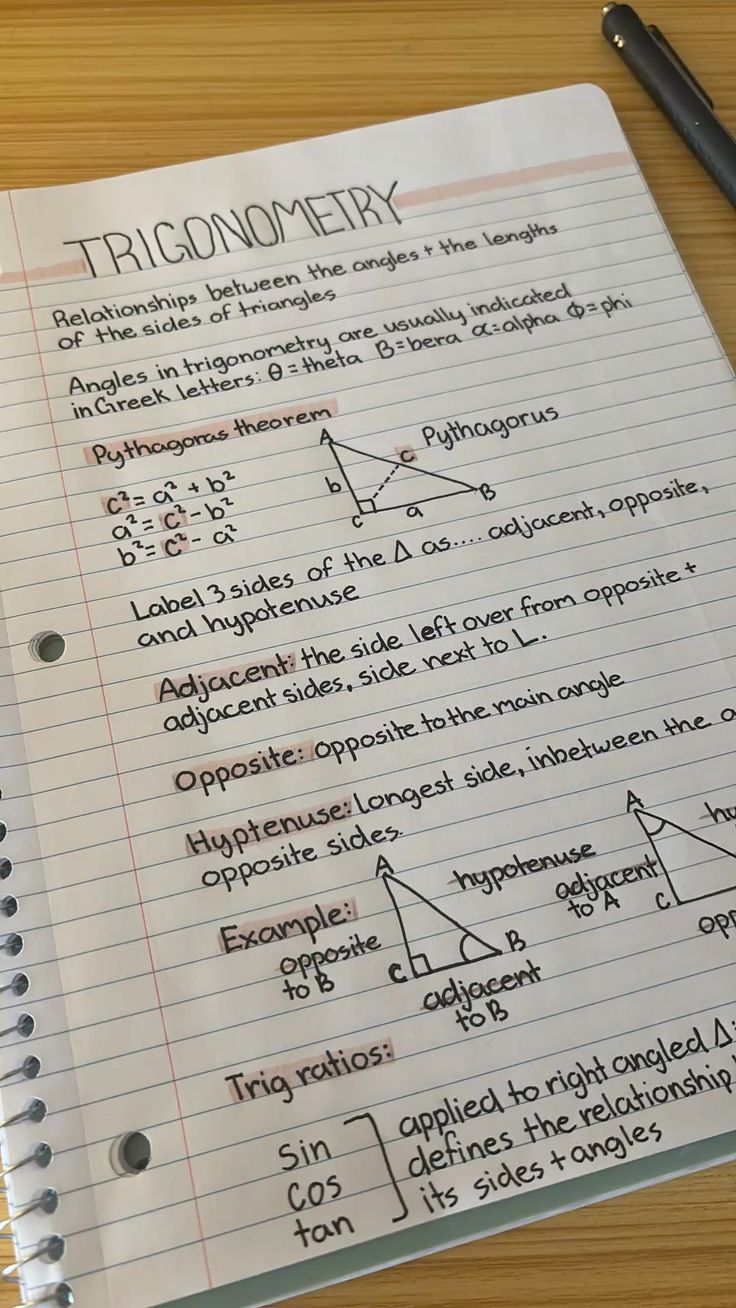 TRIGONOMETRY
Relationships between the angles + the lengths
of the sides of triangles
Angles in trigonometry are usually indicated
in Greek letters: θ = theta B = bera α = alpha Φ = phi
Pythagoras theorem
c² = a² + b²
a² = c² - b²
b² = c² - a²
A
c Pythagorus
b
B
C
a
Label 3 sides of the Δ as.... adjacent, opposite,
and hypotenuse
Adjacent: the side left over from opposite +
adjacent sides, side next to L.
Opposite: opposite to the main angle
Hyptenuse: longest side, inbetween the
opposite sides.
Example:
A
hypotenuse
opposite
to B
C
B
adjacent
to B
A
adjacent
to A
C
Trig ratios:
sin
cos
tan
applied to right angled Δ
defines the relationship
its sides + angles